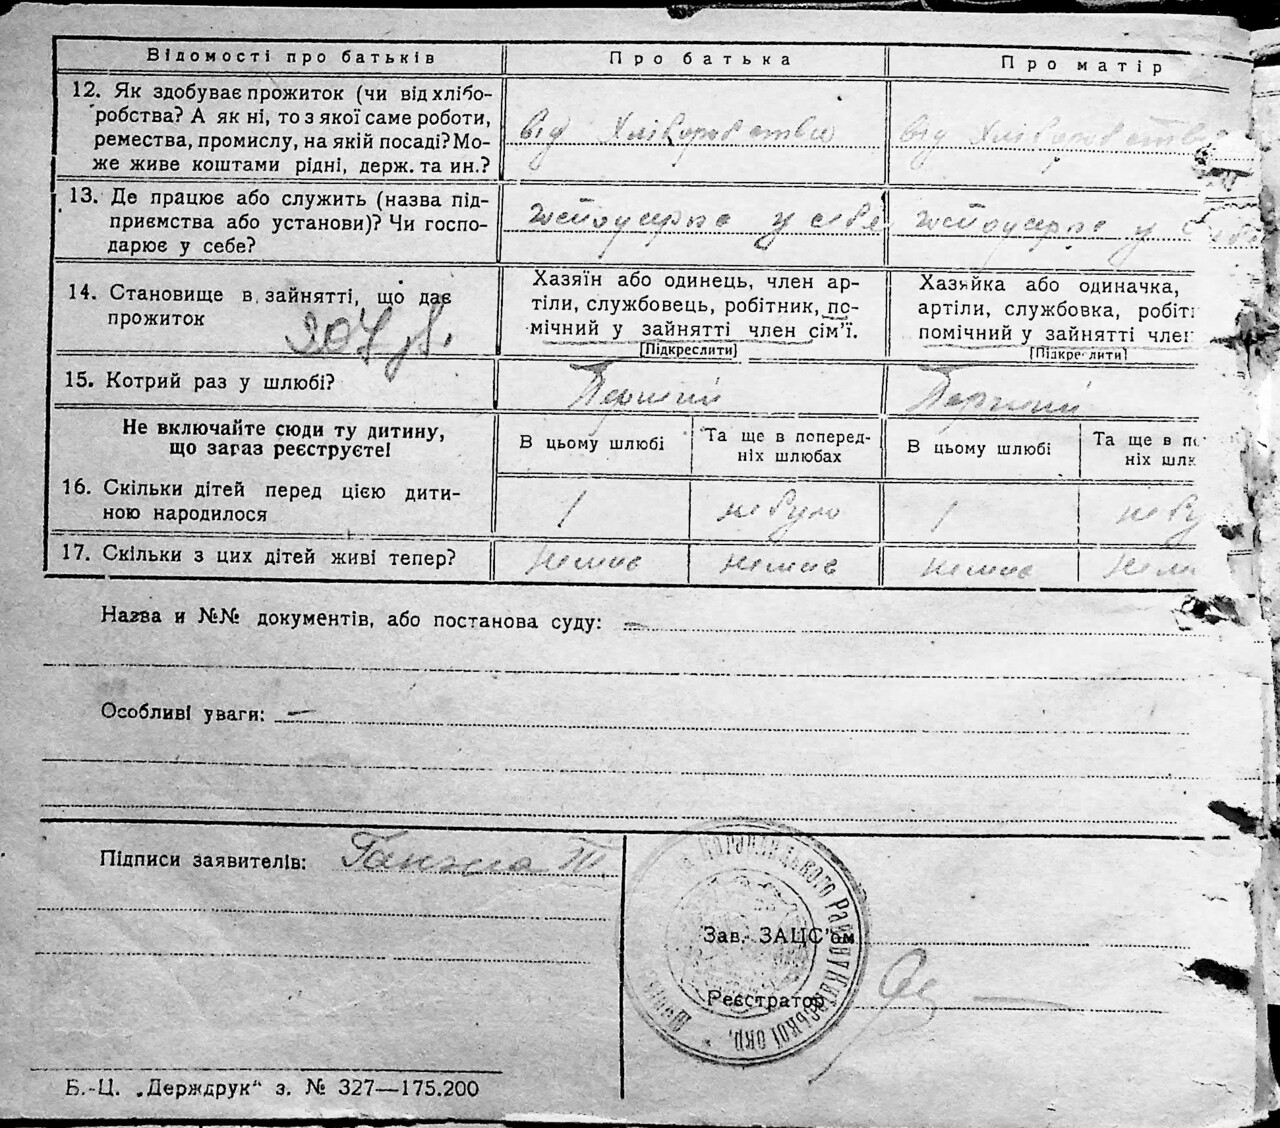 Відомості про батьків
Про батька
Про матір
12. Як здобуває прожиток (чи від хлібо-
робства? А як ні, то з якої саме роботи,
ремества, промислу, на якій посаді? Мо-
же живе коштами рідні, держ. та ин.?
від Хліборобства
від Хліборобства
13. Де працює або служить (назва під-
приємства або установи)? Чи госпо-
дарює у себе?
у себе
у себе
14. Становище в зайнятті, що дає
прожиток
Хазяїн або одинець, член ар-
тіли, службовець, робітник, по-
мічний у зайнятті член сім’ї.
[Підкреслити]
Хазяйка або одиначка,
артіли, службовка, робіт
помічний у зайнятті член
[Підкреслити]
15. Котрий раз у шлюбі?
Перший
Перший
Не включайте сюди ту дитину,
що загаз реєструєте!
В цьому шлюбі
Та ще в поперед-
ніх шлюбах
В цьому шлюбі
Та ще в по
ніх шлю
16. Скільки дітей перед цією дити-
ною народилося
1
не було
1
не бу
17. Скільки з цих дітей живі тепер?
немає
немає
немає
нема
Назва и №№ документів, або постанова суду: —
Особливі уваги: —
Підписи заявителів: Ганжа Т
Зав. ЗАЦС’ом
Реєстратор
Б.-Ц. „Держдрук“ з. № 327—175.200